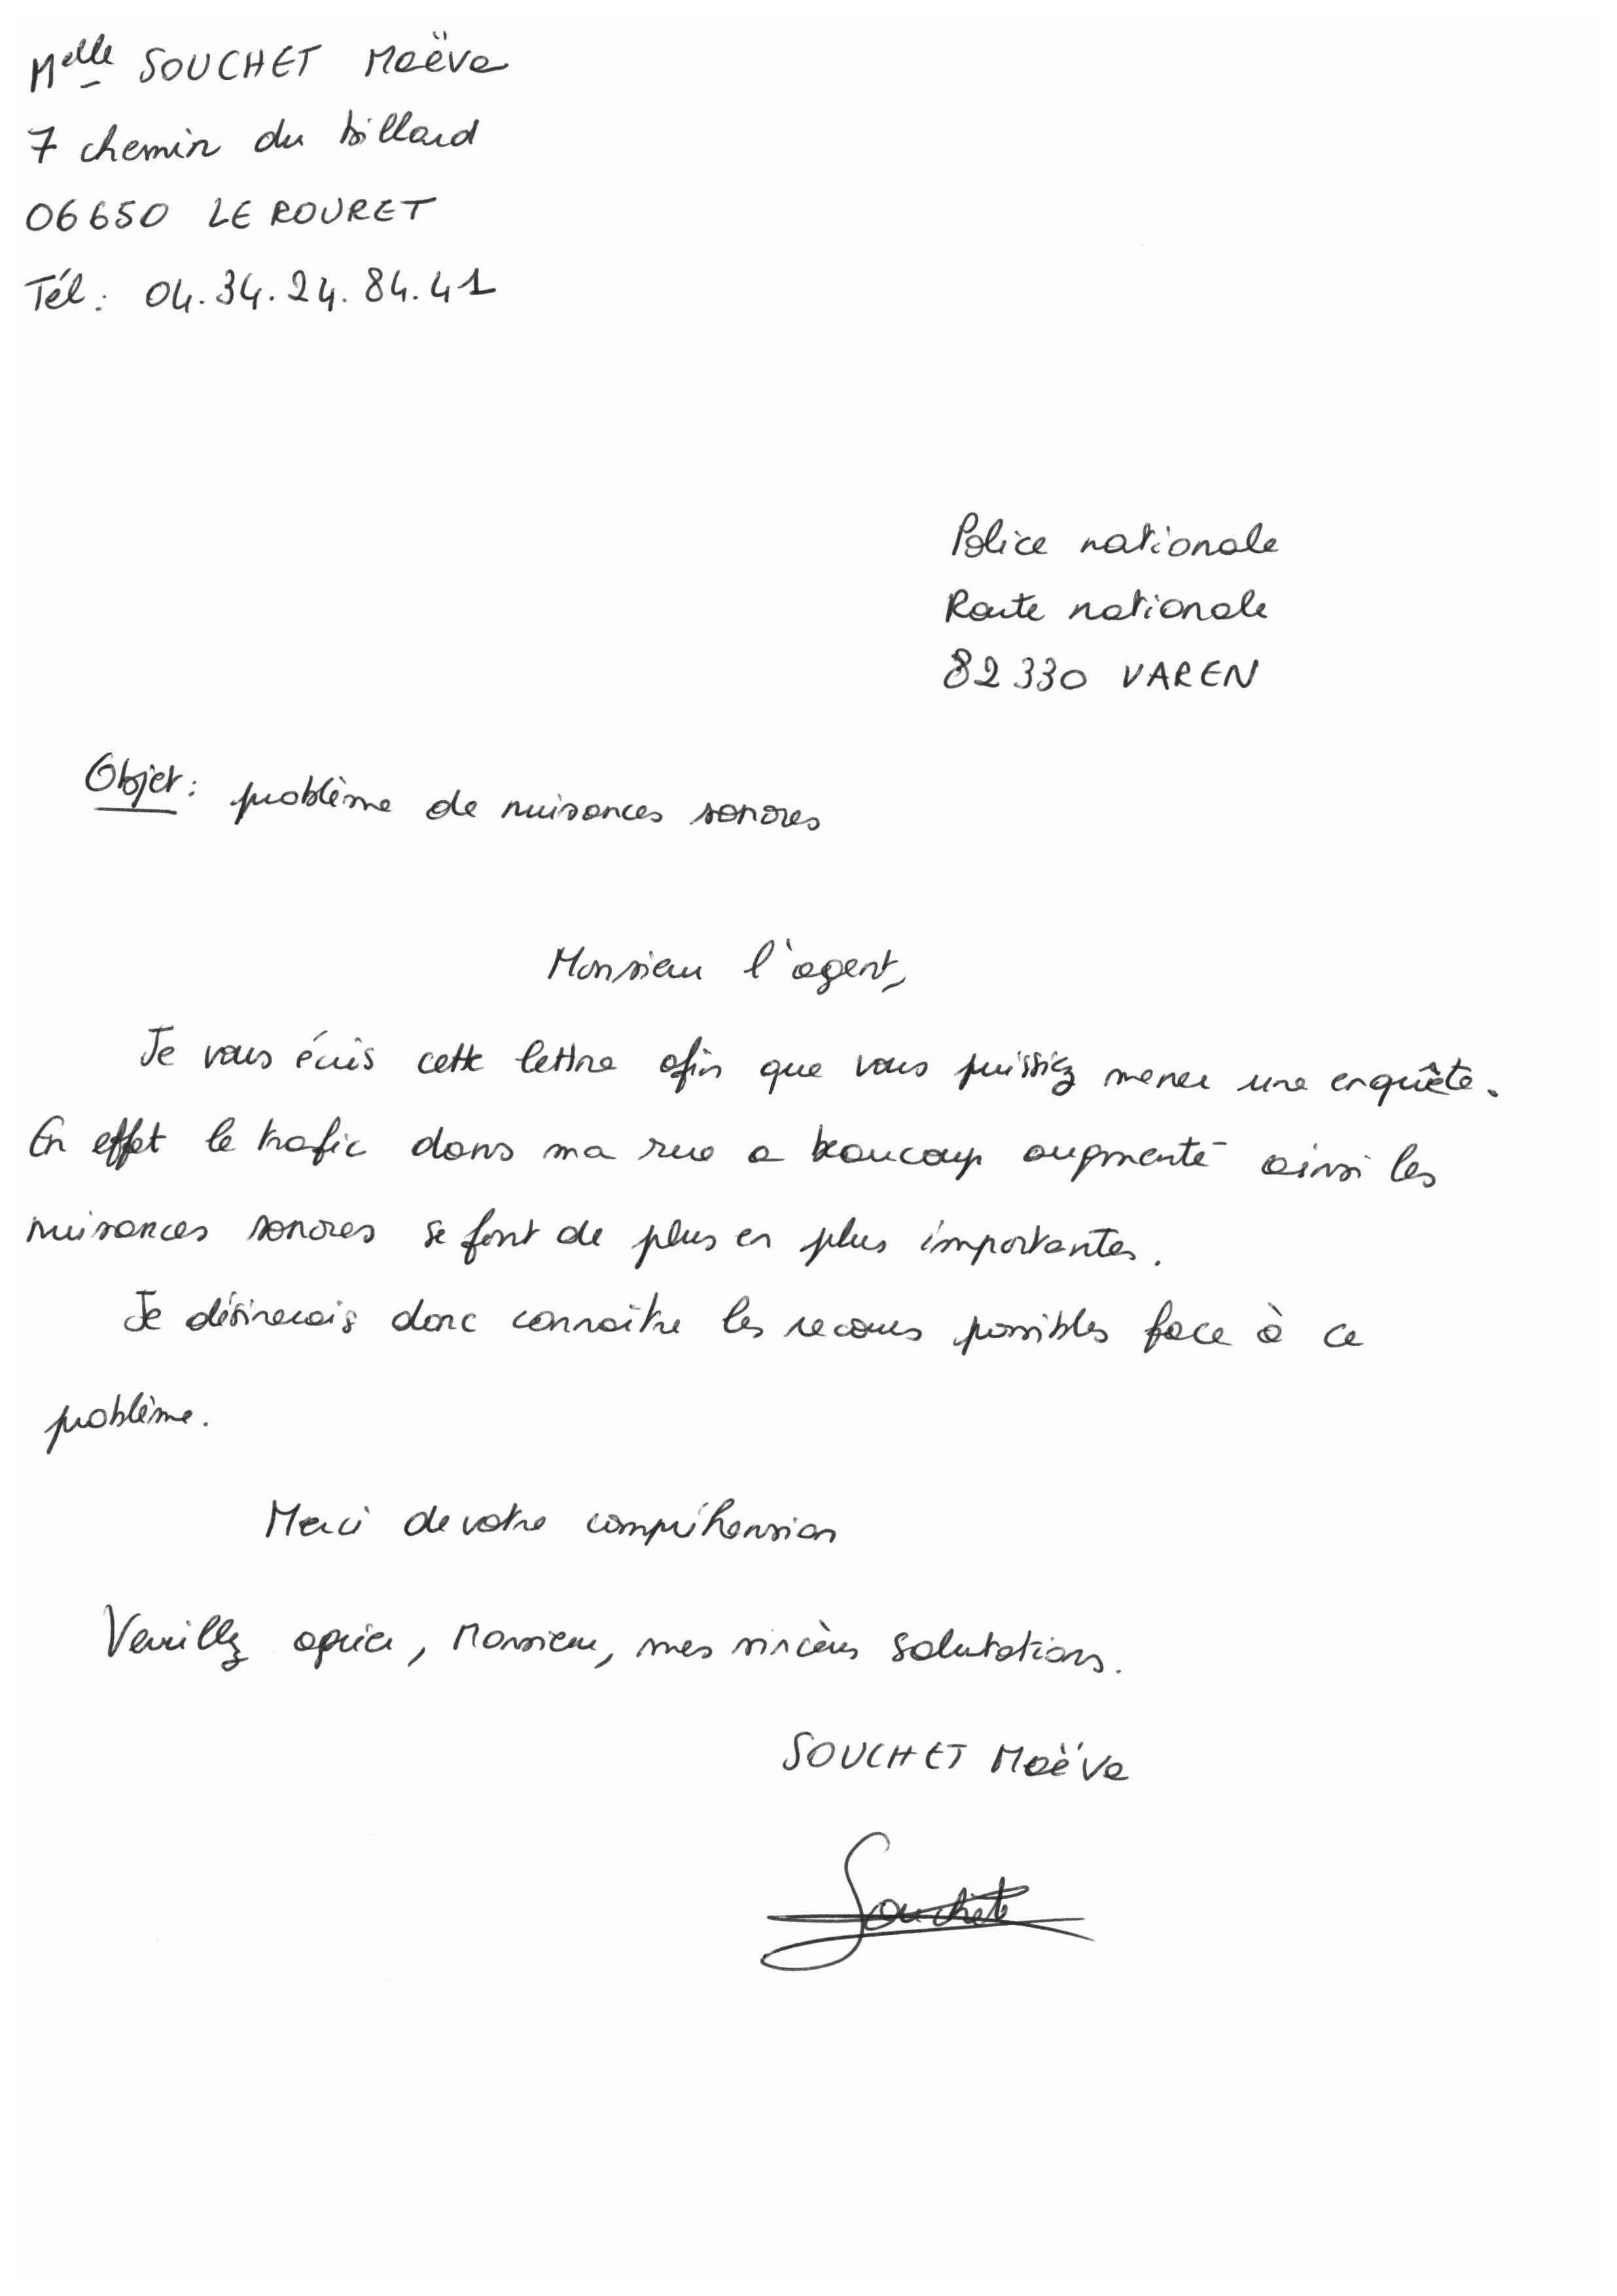 Melle SOUCHET Maëva
7 chemin du billard
06650 LE ROURET
Tél : 04.34.24.84.41
Police nationale
Route nationale
82330 VAREN
Objet : problème de nuisances sonores
Monsieur l'agent,
Je vous écris cette lettre afin que vous puissiez mener une enquête.
En effet le trafic dans ma rue a beaucoup augmenté ainsi les
nuisances sonores se font de plus en plus importantes.
Je désirerais donc connaître les recours possibles face à ce
problème.
Merci de votre compréhension
Veuillez agréer, Monsieur, mes sincères salutations.
SOUCHET Maëva
Souchet